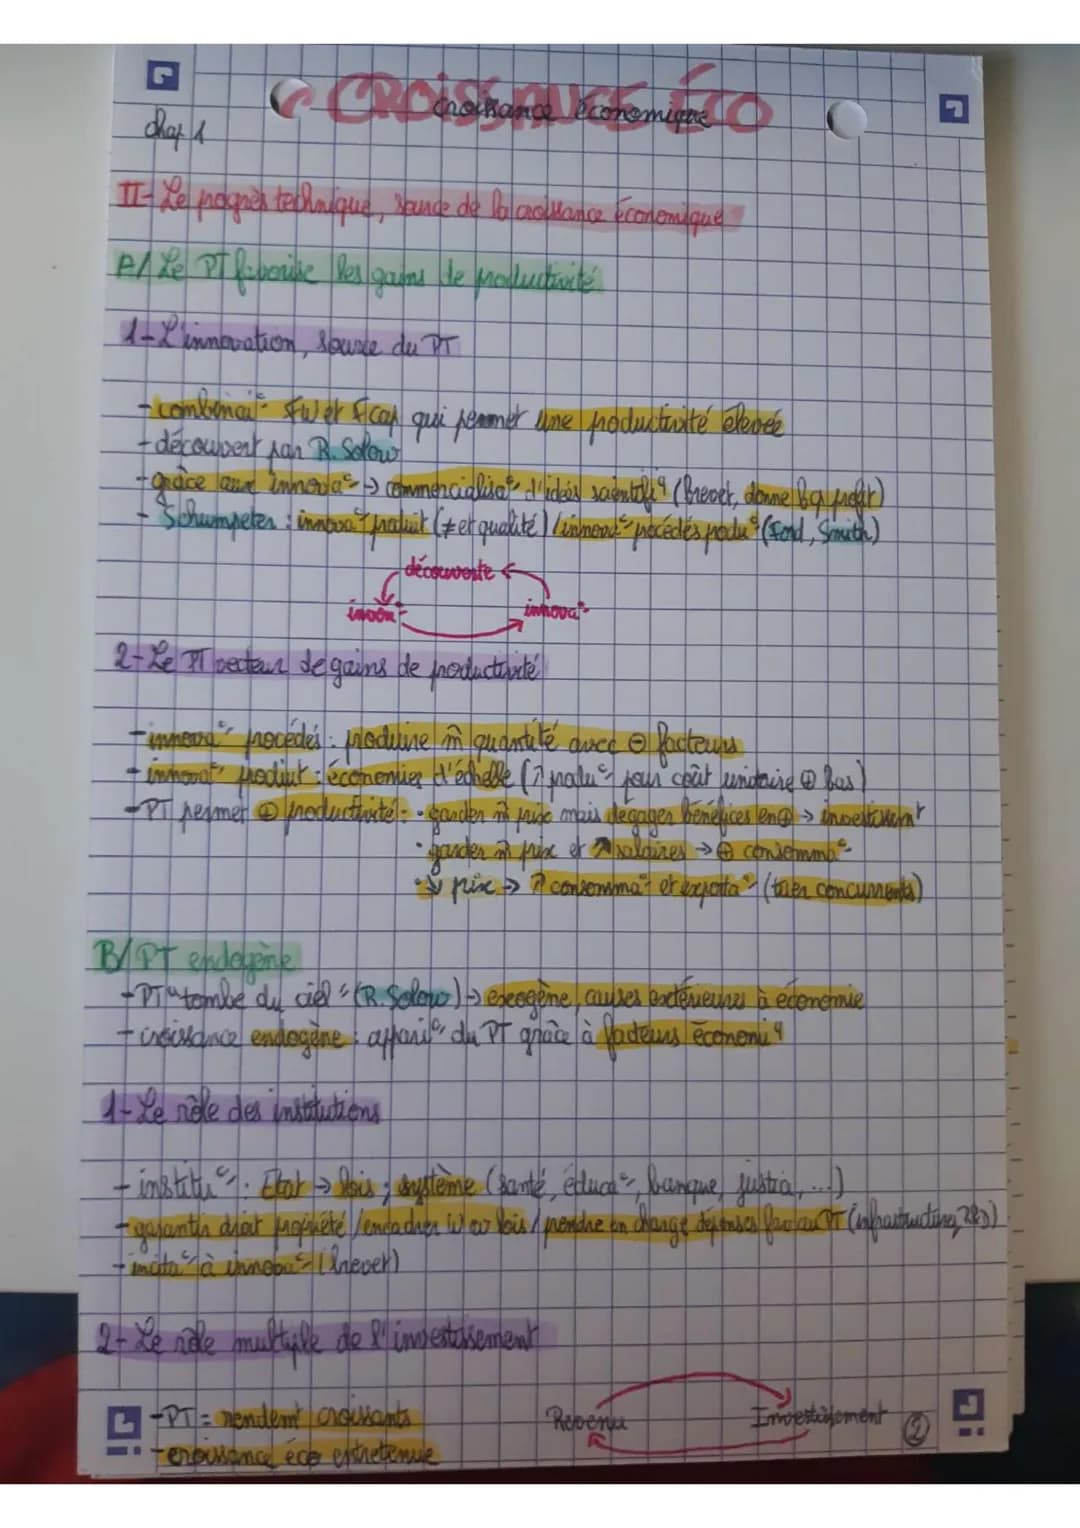 CROISSANCE ÉCO
Croissance économique
chap 1
II- Le progrès technique, source de la croissance économique
A/ Le PT favorise les gains de productivité
1- L'innovation, source du PT
- combinai° FW et Fcap qui permet une productivité élevée
- découvert par R. Solow
- grâce aux innova° → commercialisa° d'idées scientifiq (brevet, donne profit)
- Schumpeter : innova° produit (≠ et qualité) / innova° procédés produ° (Ford, Smith)
découverte
innova°
2- Le PT vecteur de gains de productivité
- innova° procédés : produire m̂ quantité avec ⊖ facteurs
- innova° produit : économies d'échelle (↗ produ° pour coût unitaire ⊕ bas)
- PT permet ⊕ productivité : · garder m̂ prix mais dégager bénéfices en ⊕ → investissement
· garder m̂ prix et ↗ salaires → ⊕ consomma°
· ↘ prix → ↗ consomma° et exporta° (tuer concurrents)
B/ PT endogène
- PT "tombe du ciel" (R. Solow) → exogène, causes extérieures à économie
- croissance endogène : appari° du PT grâce à facteurs économiq
1- Le rôle des institutions
- institu° : Etat → lois ; système (santé, éduca°, banque, justice, ...)
- garantir droit propriété / encadrer W av lois / prendre en charge dépenses fav au PT (infrastructures, R&D)
- incita° à innova° (brevet)
2- Le rôle multiple de l'investissement
- PT = rendemt croissants
- croissance éco entretenue
Revenu
Investissement
2